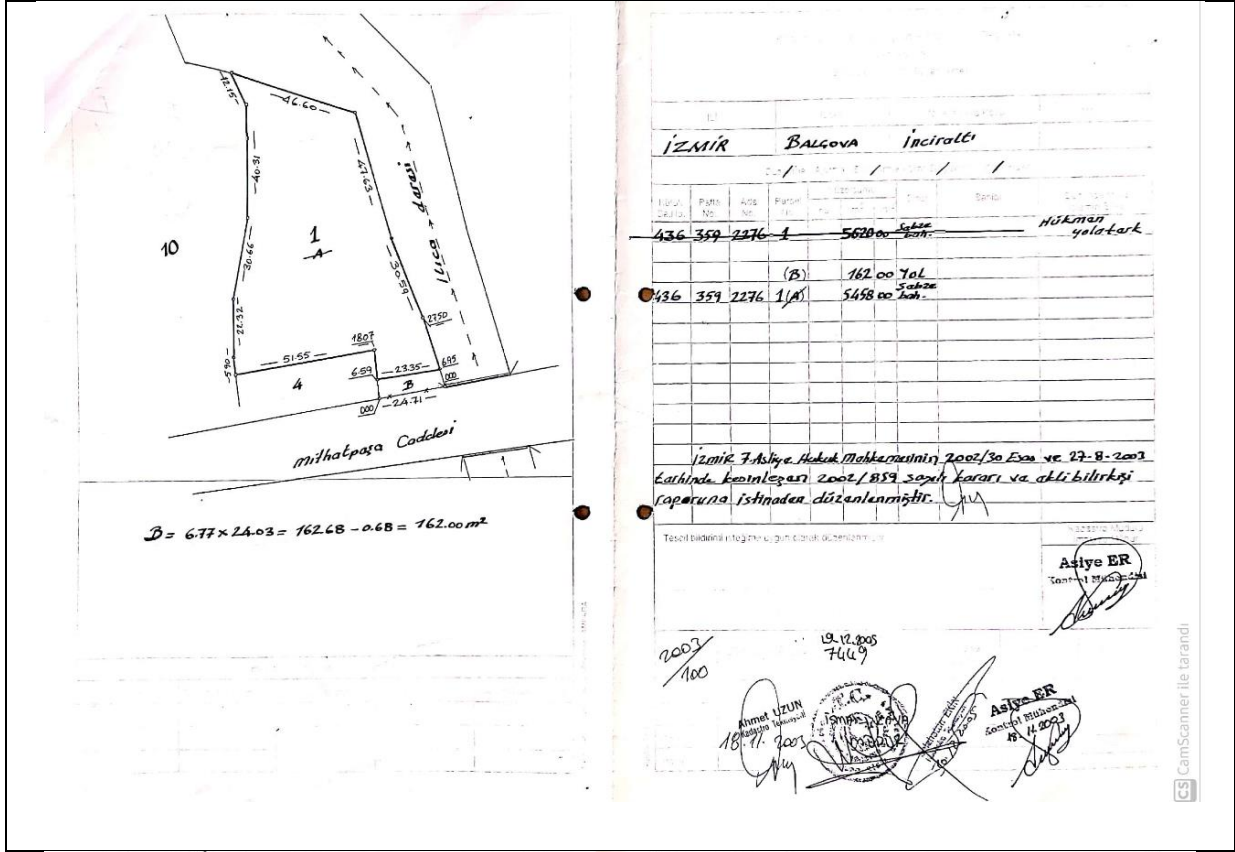 12.15
46.60
40.31
47.63
ılıca deresi
10
1
A
30.66
30.59
22.32
2750
5.90
51.55
1807
4
6.59
23.35
695
B
000
24.71
000
Mithatpaşa Caddesi
1
B = 6.77 x 24.03 = 162.68 - 0.68 = 162.00 m²
İZMİR BALÇOVA İnciraltı
Pafta No. Ada No. Parsel No.
436 359 2276 1 5620 00 Sebze bah. Hükmen yola terk
(B) 162 00 Yol
436 359 2276 1(A) 5458 00 Sebze bah.
İzmir 7 Asliye Hukuk Mahkemesinin 2002/30 Esas ve 27-8-2003
tarihinde kesinleşen 2002/859 sayılı kararı ve ekli bilirkişi
raporuna istinaden düzenlenmiştir.
Tescil bildirimi isteğime uygun olarak düzenlenmiştir
Asiye ER
Kontrol Mühendisi
2003/100
19.12.2005
7449
Ahmet UZUN
Kadastro Teknisyeni
18.11.2003
Asiye ER
Kontrol Mühendisi
18.11.2003
CS CamScanner ile tarandı